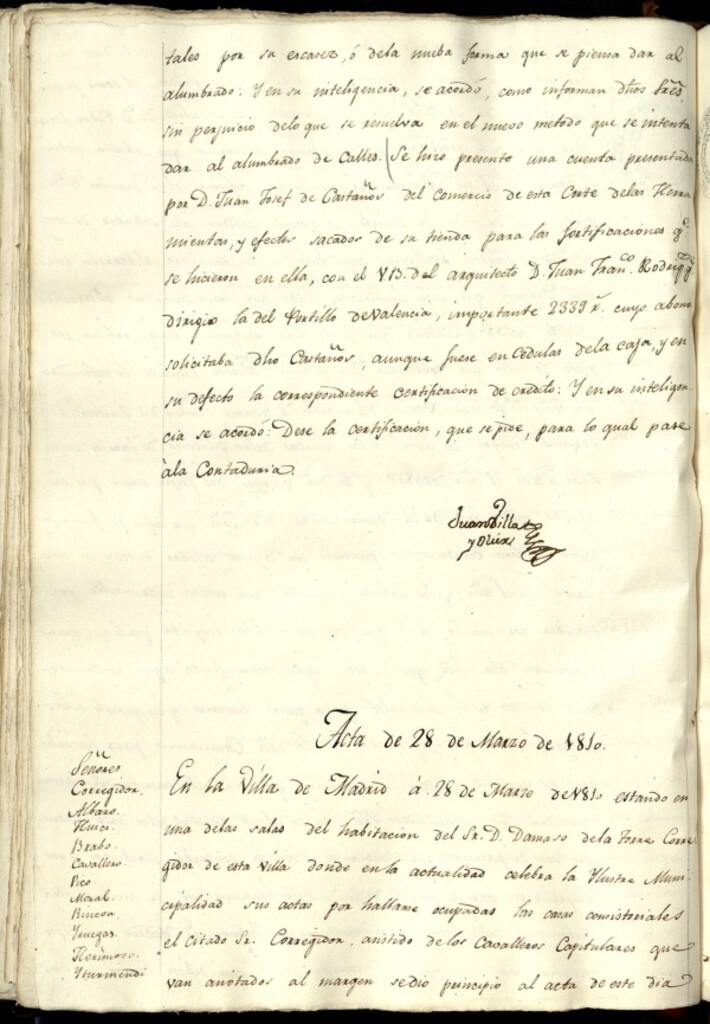 tales por su escasez, ó dela nueba forma que se piensa dar al
alumbrado: Y en su inteligencia, se acordó, como informan dhõs Srẽs,
sin perjuicio delo que se resuelva en el nuevo metodo que se intenta
dar al alumbrado de Calles. (Se hizo presente una cuenta presentada
por D. Juan Josef de Castaños del Comercio de esta Corte delas Herra
mientas, y efectos sacados de su tienda para las fortificaciones q.e
se hicieron en ella, con el VB. del arquitecto D. Juan Fran.co Rodrig.z q.e
dirigió la del Portillo de Valencia, importante 2339 r.s cuyo abono
solicitaba dho Castaños, aunque fuese en Cedulas dela caja, y en
su defecto la correspondiente certificacion de credito: Y en su inteligen
cia se acordó: Dese la certificacion, que se pide, para lo qual pase
àla Contaduria.
Juan Villa
y Olier
Acta de 28 de Marzo de 1810.
Señores
Corregidor.
Albaro.
Huici.
Brabo.
Cavallero.
Pico
Moral.
Rincon.
Yruegas.
Hermoso.
Yturmendi
En la Villa de Madrid á 28 de Marzo de 1810 estando en
una delas salas del habitacion del Sr. D. Damaso dela Torre Corre
gidor de esta Villa donde en la actualidad celebra la Ilustre Muni-
cipalidad sus actas por hallarse ocupadas las casas consistoriales
el citado Sr. Corregidor, asistido delos Cavalleros Capitulares que
van anotados al margen sedio principio al acta de este dia